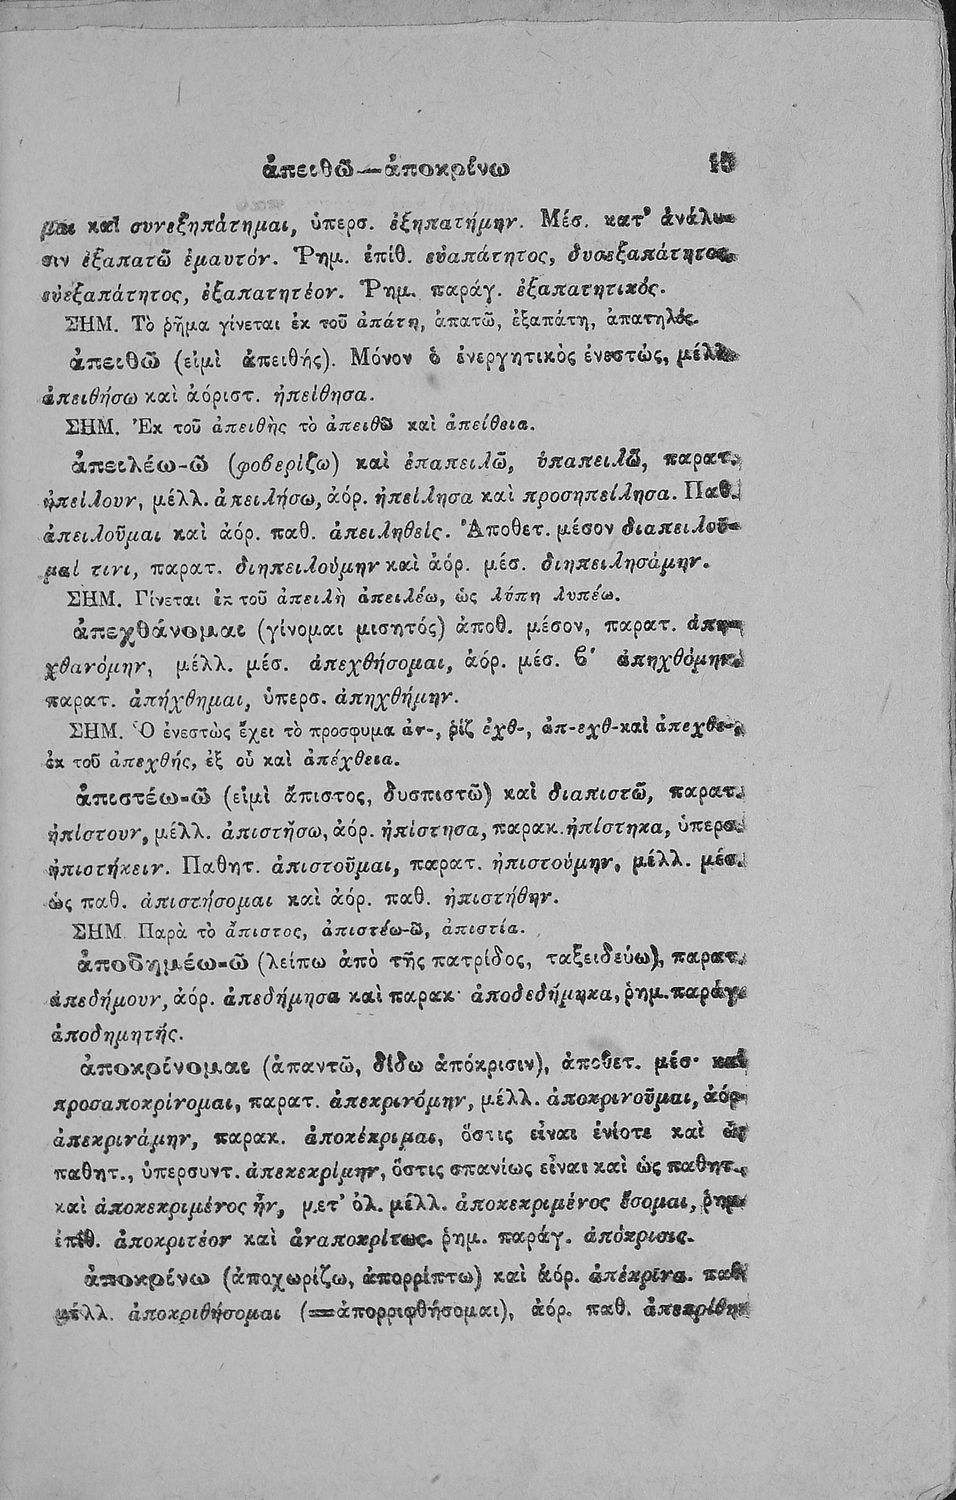 ἀπειθῶ—ἀποκρίνω 15
μαι καὶ συνεξηπάτημαι, ὑπερσ. ἐξηπατήμην. Μέσ. κατ’ ἀνάλυ-
σιν ἐξαπατῶ ἐμαυτόν. Ῥημ. ἐπίθ. εὐαπάτητος, δυσεξαπάτητος,
εὐεξαπάτητος, ἐξαπατητέον. Ῥημ. παράγ. ἐξαπατητικός.
ΣΗΜ. Τὸ ῥῆμα γίνεται ἐκ τοῦ ἀπάτη, ἀπατῶ, ἐξαπάτη, ἀπατηλός.
ἀπειθῶ (εἰμὶ ἀπειθής). Μόνον ὁ ἐνεργητικὸς ἐνεστώς, μέλλ.
ἀπειθήσω καὶ ἀόριστ. ἠπείθησα.
ΣΗΜ. Ἐκ τοῦ ἀπειθὴς τὸ ἀπειθῶ καὶ ἀπείθεια.
ἀπειλέω-ῶ (φοβερίζω) καὶ ἐπαπειλῶ, ὑπαπειλῶ, παρατ.
ἠπείλουν, μέλλ. ἀπειλήσω, ἀόρ. ἠπείλησα καὶ προσηπείλησα. Παθ.
ἀπειλοῦμαι καὶ ἀόρ. παθ. ἀπειληθείς. Ἀποθετ. μέσον διαπειλοῦ-
μαί τινι, παρατ. διηπειλούμην καὶ ἀόρ. μέσ. διηπειλησάμην.
ΣΗΜ. Γίνεται ἐκ τοῦ ἀπειλὴ ἀπειλέω, ὡς λύπη λυπέω.
ἀπεχθάνομαι (γίνομαι μισητός) ἀποθ. μέσον, παρατ. ἀπη-
χθανόμην, μέλλ. μέσ. ἀπεχθήσομαι, ἀόρ. μέσ. β΄ ἀπηχθόμην,
παρατ. ἀπήχθημαι, ὑπερσ. ἀπηχθήμην.
ΣΗΜ. Ὁ ἐνεστὼς ἔχει τὸ προσφυμα ἀν-, ῥίζ ἐχθ-, ἀπ-εχθ- καὶ ἀπεχθε-,
ἐκ τοῦ ἀπεχθής, ἐξ οὗ καὶ ἀπέχθεια.
ἀπιστέω-ῶ (εἰμὶ ἄπιστος, δυσπιστῶ) καὶ διαπιστῶ, παρατ.
ἠπίστουν, μέλλ. ἀπιστήσω, ἀόρ. ἠπίστησα, παρακ. ἠπίστηκα, ὑπερσ.
ἠπιστήκειν. Παθητ. ἀπιστοῦμαι, παρατ. ἠπιστούμην, μέλλ. μέσ.
ὡς παθ. ἀπιστήσομαι καὶ ἀόρ. παθ. ἠπιστήθην.
ΣΗΜ. Παρὰ τὸ ἄπιστος, ἀπιστέω-ῶ, ἀπιστία.
ἀποδημέω-ῶ (λείπω ἀπὸ τῆς πατρίδος, ταξειδεύω), παρατ.
ἀπεδήμουν, ἀόρ. ἀπεδήμησα καὶ παρακ· ἀποδεδήμηκα, ῥημ. παράγ.
ἀποδημητής.
ἀποκρίνομαι (ἀπαντῶ, δίδω ἀπόκρισιν), ἀποθετ. μέσ· καὶ
προσαποκρίνομαι, παρατ. ἀπεκρινόμην, μέλλ. ἀποκρινοῦμαι, ἀόρ.
ἀπεκρινάμην, παρακ. ἀποκέκριμαι, ὅστις εἶναι ἐνίοτε καὶ ὡς
παθητ., ὑπερσυντ. ἀπεκεκρίμην, ὅστις σπανίως εἶναι καὶ ὡς παθητ.,
καὶ ἀποκεκριμένος ἦν, μετ’ ὀλ. μέλλ. ἀποκεκριμένος ἔσομαι, ῥημ.
ἐπίθ. ἀποκριτέον καὶ ἀναποκρίτως. ῥημ. παράγ. ἀπόκρισις.
ἀποκρίνω (ἀποχωρίζω, ἀπορρίπτω) καὶ ἀόρ. ἀπέκρῖνα. παθ.
μέλλ. ἀποκριθήσομαι (=ἀπορριφθήσομαι), ἀόρ. παθ. ἀπεκρίθην